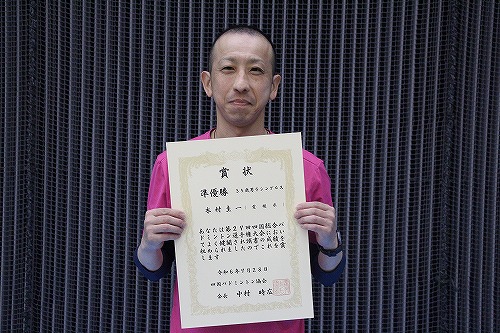 賞状
準優勝 35歳男子シングルス
木村圭一(愛媛県)
あなたは第27回四国総合バ
ドミントン選手権大会におい
てよく健闘され頭書の成績を
収められましたのでこれを賞
します
令和6年7月28日
四国バドミントン協会
会長 中村時広